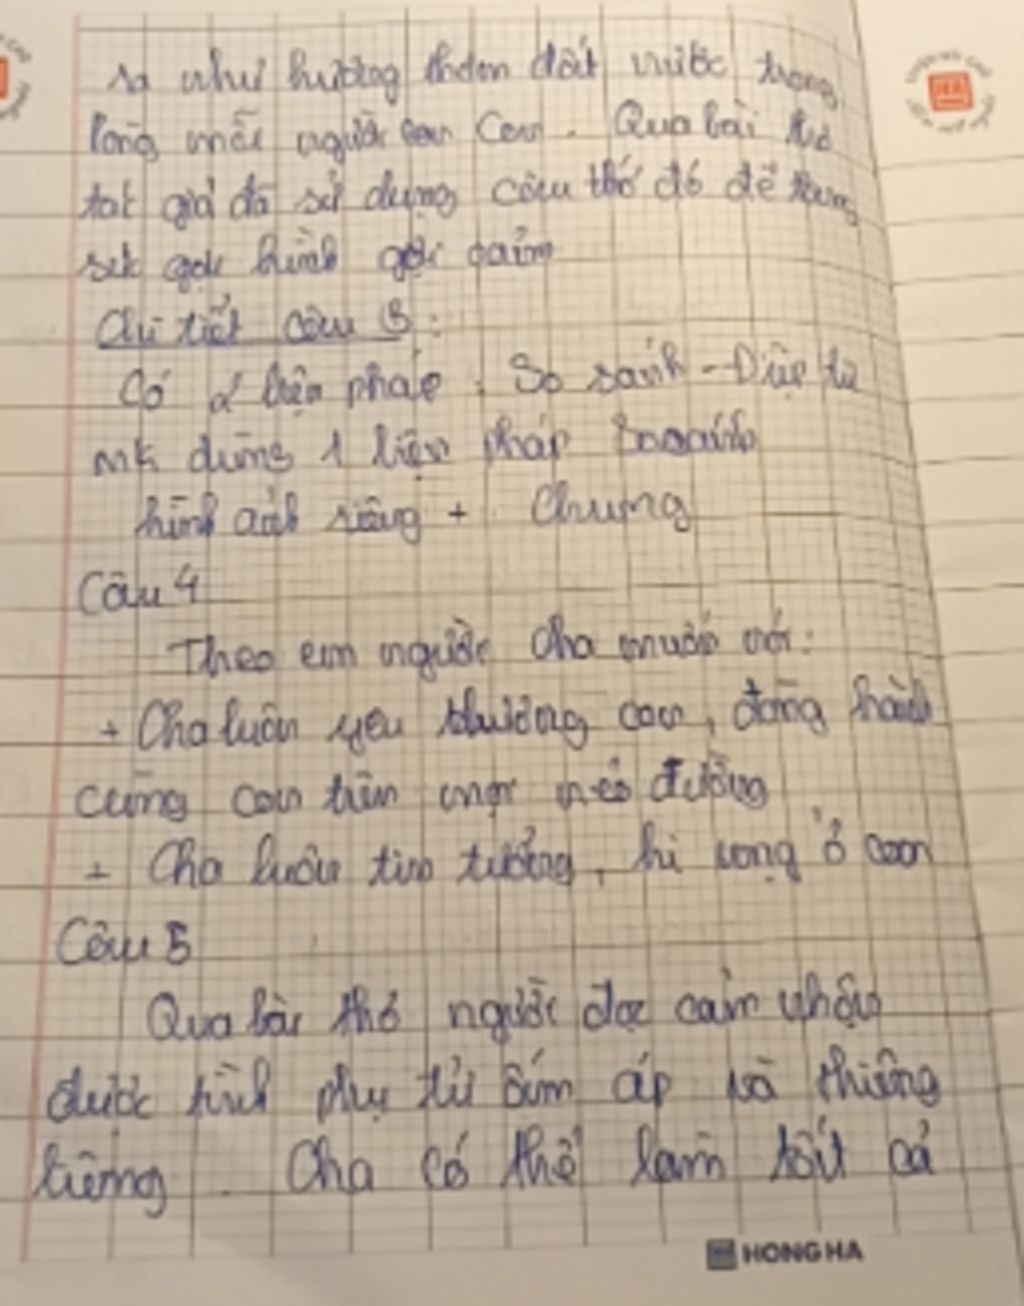 ra như hương thơm đất nước trong
lòng mỗi người con. Qua bài thơ
tác giả đã sử dụng câu thơ đó để tăng
sức gợi hình gợi cảm
Chi tiết câu 3:
Có 2 biện pháp: So sánh - Điệp từ
mk dùng 1 biện pháp So sánh
hình ảnh riêng + Chung
Câu 4
Theo em người cha muốn nói:
+ Cha luôn yêu thương con, đồng hành
cùng con trên mọi nẻo đường
+ Cha luôn tin tưởng, hi vọng ở con
Câu 5
Qua bài thơ người đọc cảm nhận
được tình phụ tử ấm áp và thiêng
liêng. Cha có thể làm tất cả
HONG HA